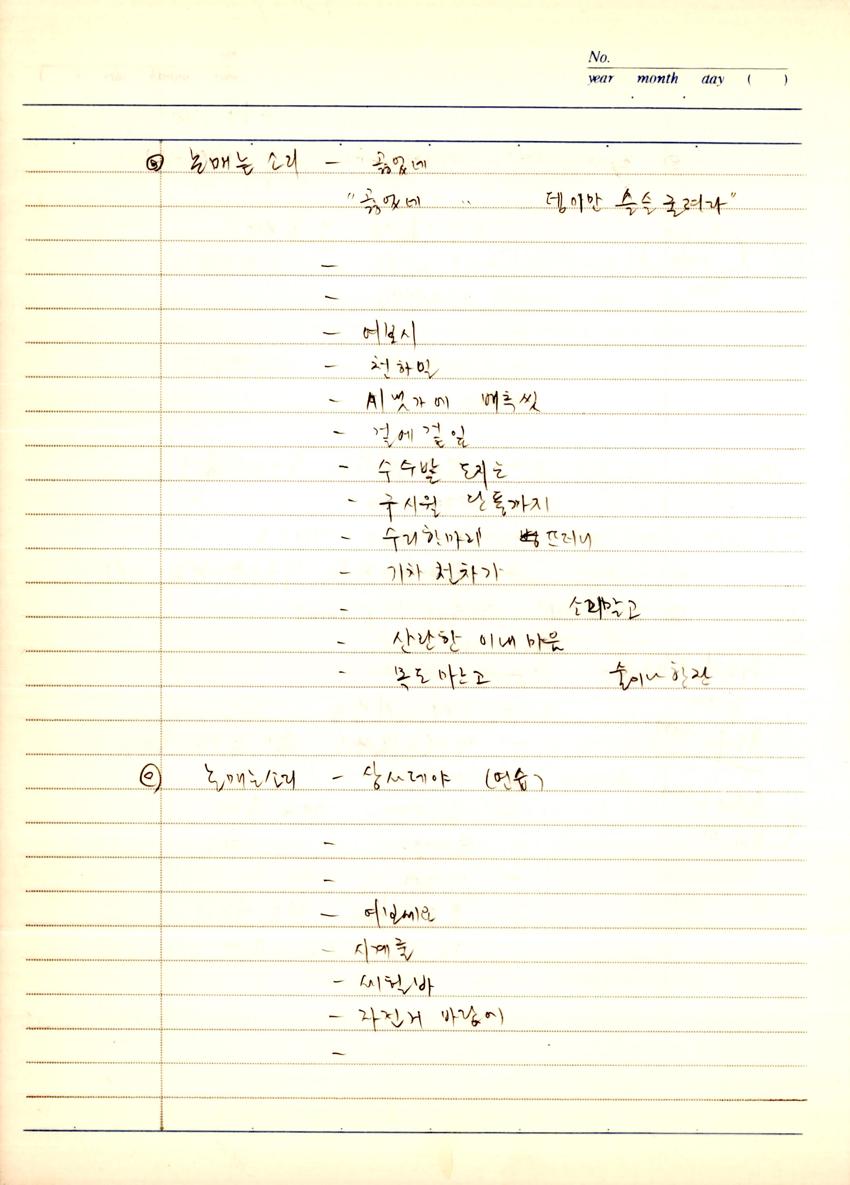 No.
year month day ( )
ⓑ 논매는 소리 - 곯었네
"곯었네 〃 뎅이만 슬슬 굴려라"
-
-
- 여보시
- 천하일
- 시냇가에 배추씻
- 겉에 겉잎
- 수수밭 도지는
- 구시월 단풍까지
- 수리한마리 뜨더니
- 기차 천차가
- 소리말고
- 산란한 이내 마음
- 목도 마르고 술이나 한잔
ⓒ 논매는소리 - 상사데야 (연습)
-
-
- 여보세요
- 시계줄
- 씨헐바
- 자진거 바람에
-